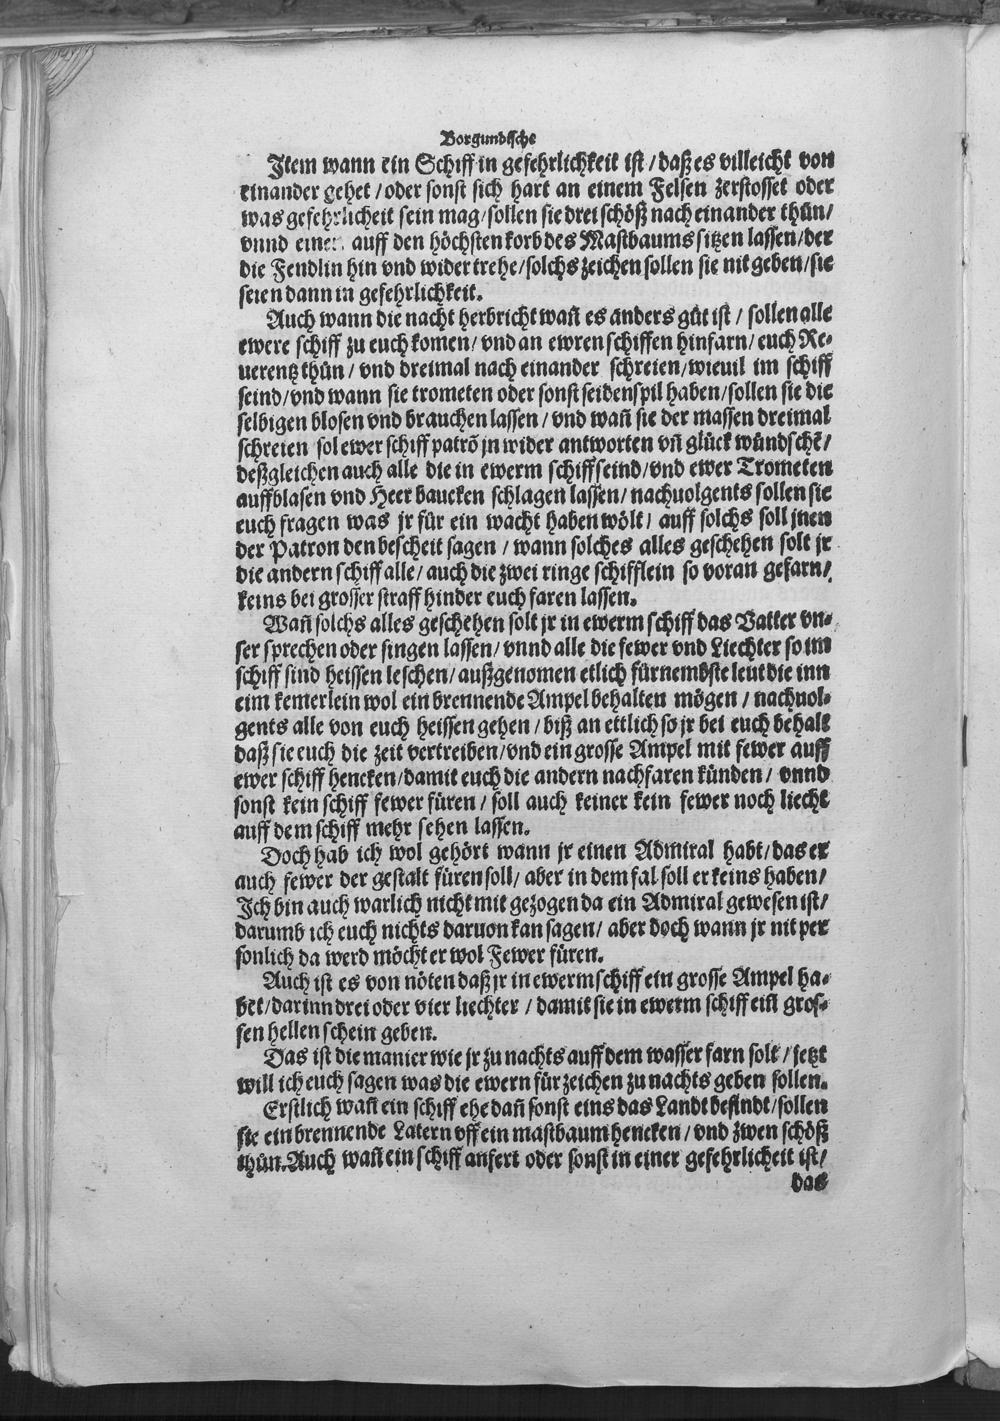 Borgundische
Item wann ein Schiff in gefehrlichkeit ist / daß es villeicht von
einander gehet / oder sonst sich hart an einem Felsen zerstosset oder
was gefehrlicheit sein mag / sollen sie drei schöß nach einander thůn /
vnnd einer auff den höchsten korb des Mastbaums sitzen lassen / der
die Fendlin hin vnd wider trehe / solchs zeichen sollen sie nit geben / sie
seien dann in gefehrlichkeit.
Auch wann die nacht herbricht wañ es anders gůt ist / sollen alle
ewere schiff zu euch komen / vnd an ewren schiffen hinfarn / euch Re-
uerentz thůn / vnd dreimal nach einander schreien / wieuil im schiff
seind / vnd wann sie trometen oder sonst seidenspil haben / sollen sie die
selbigen blosen vnd brauchen lassen / vnd wañ sie der massen dreimal
schreien sol ewer schiff patrõ jn wider antworten vñ glück wündschẽ /
deßgleichen auch alle die in ewerm schiff seind / vnd ewer Trometen
auffblasen vnd Heer baucken schlagen lassen / nachuolgents sollen sie
euch fragen was jr für ein wacht haben wölt / auff solchs soll jnen
der Patron den bescheit sagen / wann solches alles geschehen solt jr
die andern schiff alle / auch die zwei ringe schifflein so voran gefarn /
keins bei grosser straff hinder euch faren lassen.
Wañ solchs alles geschehen solt jr in ewerm schiff das Vatter vn-
ser sprechen oder singen lassen / vnnd alle die fewer vnd Liechter so im
schiff sind heissen leschen / außgenomen etlich fürnembste leut die inn
eim kemerlein wol ein brennende Ampel behalten mögen / nachuol-
gents alle von euch heissen gehen / biß an ettlich so jr bei euch behalt
daß sie euch die zeit vertreiben / vnd ein grosse Ampel mit fewer auff
ewer schiff hencken / damit euch die andern nachfaren künden / vnnd
sonst kein schiff fewer füren / soll auch keiner kein fewer noch liecht
auff dem schiff mehr sehen lassen.
Doch hab ich wol gehört wann jr einen Admiral habt / das er
auch fewer der gestalt füren soll / aber in dem fal soll er keins haben /
Ich bin auch warlich nicht mit gezogen da ein Admiral gewesen ist /
darumb ich euch nichts daruon kan sagen / aber doch wann jr nit per
sonlich da werd möcht er wol Fewer füren.
Auch ist es von nöten daß jr in ewerm schiff ein grosse Ampel ha-
bet / darinn drei oder vier liechter / damit sie in ewerm schiff ein gros-
sen hellen schein geben.
Das ist die manier wie jr zu nachts auff dem wasser farn solt / jetzt
will ich euch sagen was die ewern für zeichen zu nachts geben sollen.
Erstlich wañ ein schiff ehe dañ sonst eins das Landt befindt / sollen
sie ein brennende Latern vff ein mastbaum hencken / vnd zwen schöß
thůn. Auch wañ ein schiff anfert oder sonst in einer gefehrlicheit ist /
das